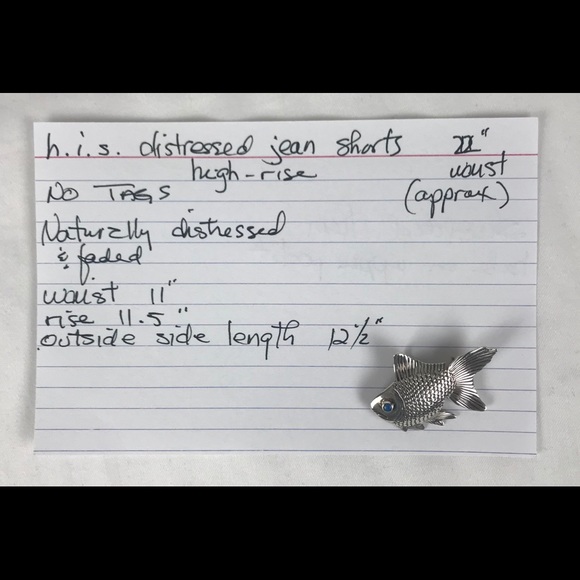 h.i.s. distressed jean shorts 22"
high-rise waist
NO TAGS (approx)
Naturally distressed
& faded
waist 11"
rise 11.5"
outside side length 12 1/2"